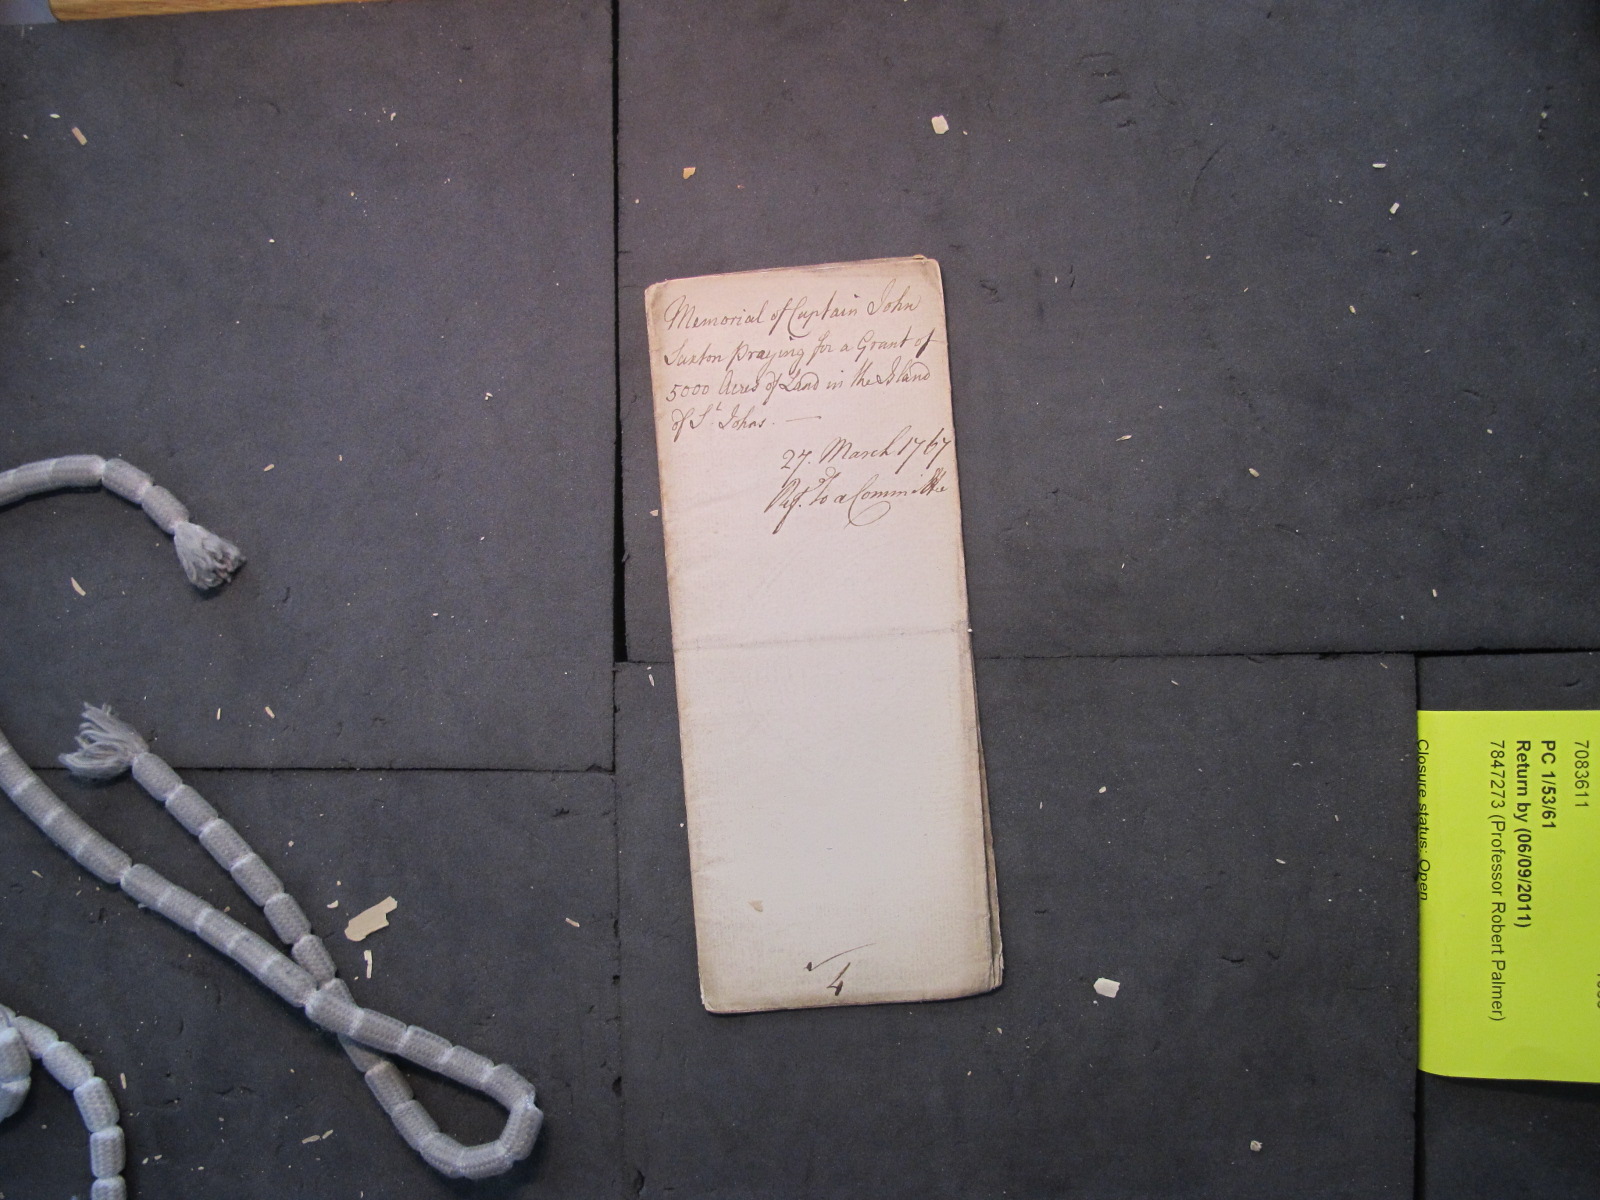 Memorial of Captain John
Saxton Praying for a Grant of
5000 Acres of Land in the Island
of St. Johns. —
27. March 1767
Ref.d to a Committee
4
7083611
PC 1/53/61
Return by (06/09/2011)
7847273 (Professor Robert Palmer)
Closure status: Open